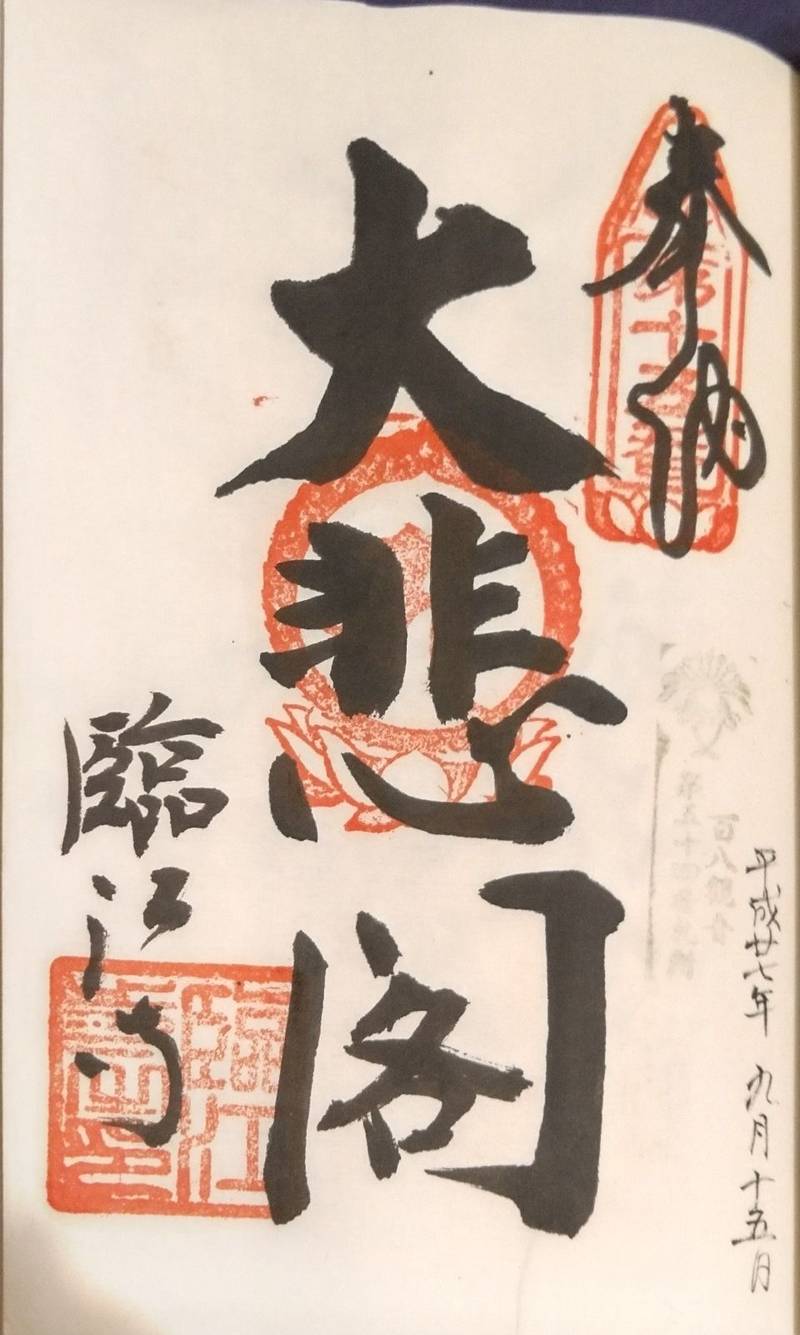 平成廿七年 九月十五日
奉納
第十五番
百八観音
大悲閣
臨江寺